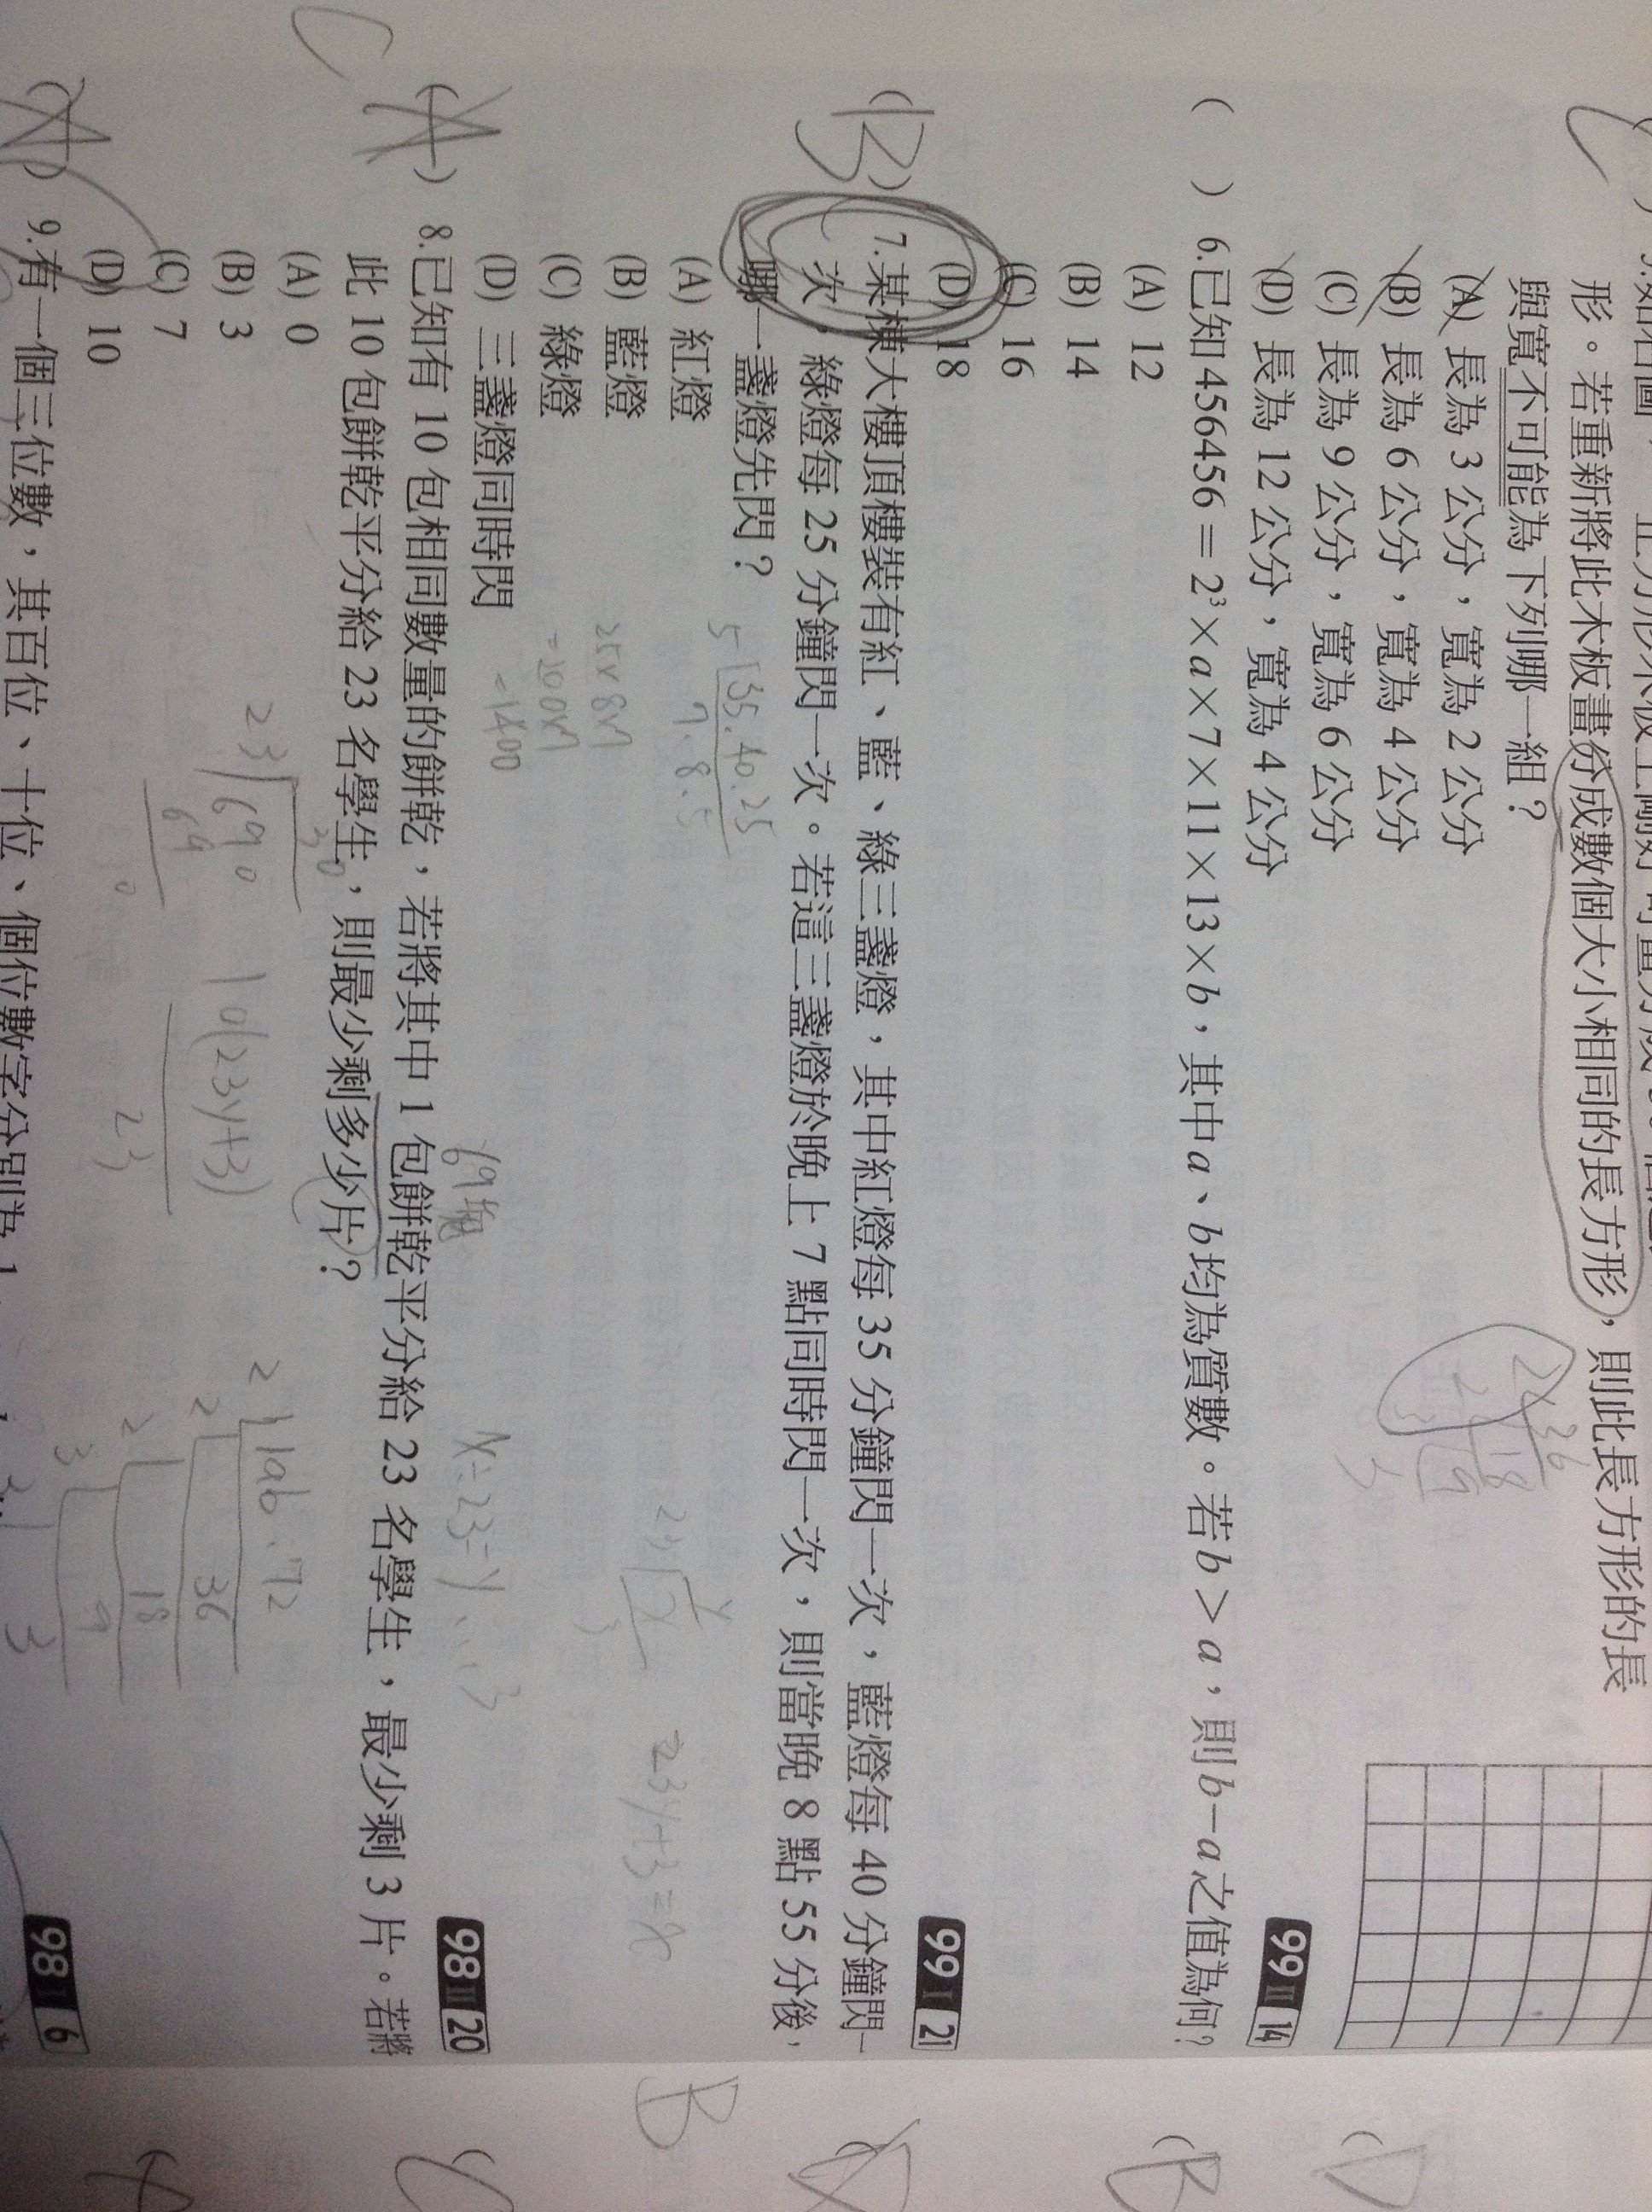 形。若重新將此木板畫分成數個大小相同的長方形,則此長方形的長
與寬不可能為下列哪一組?
(A) 長為 3 公分,寬為 2 公分
(B) 長為 6 公分,寬為 4 公分
(C) 長為 9 公分,寬為 6 公分
(D) 長為 12 公分,寬為 4 公分
99 II 14
( ) 6.已知 456456=2³×a×7×11×13×b,其中a、b均為質數。若b>a,則b-a之值為何?
(A) 12
(B) 14
(C) 16
(D) 18
99 I 21
(B) 7.某棟大樓頂樓裝有紅、藍、綠三盞燈,其中紅燈每 35 分鐘閃一次,藍燈每 40 分鐘閃一
次,綠燈每 25 分鐘閃一次。若這三盞燈於晚上 7 點同時閃一次,則當晚 8 點 55 分後,
哪一盞燈先閃?
5 35.40.25
7.8.5
(A) 紅燈
(B) 藍燈
(C) 綠燈
(D) 三盞燈同時閃
=1400
23y+3=x
98 II 20
C
(A) 8.已知有 10 包相同數量的餅乾,若將其中 1 包餅乾平分給 23 名學生,最少剩 3 片。若將
此 10 包餅乾平分給 23 名學生,則最少剩多少片?
(A) 0
(B) 3
(C) 7
(D) 10
23 690
69
0
10(23y+3)
23
36
18
9
3
98 I 6
9.有一個三位數,其百位、十位、個位數字分別為 1
D
B
B